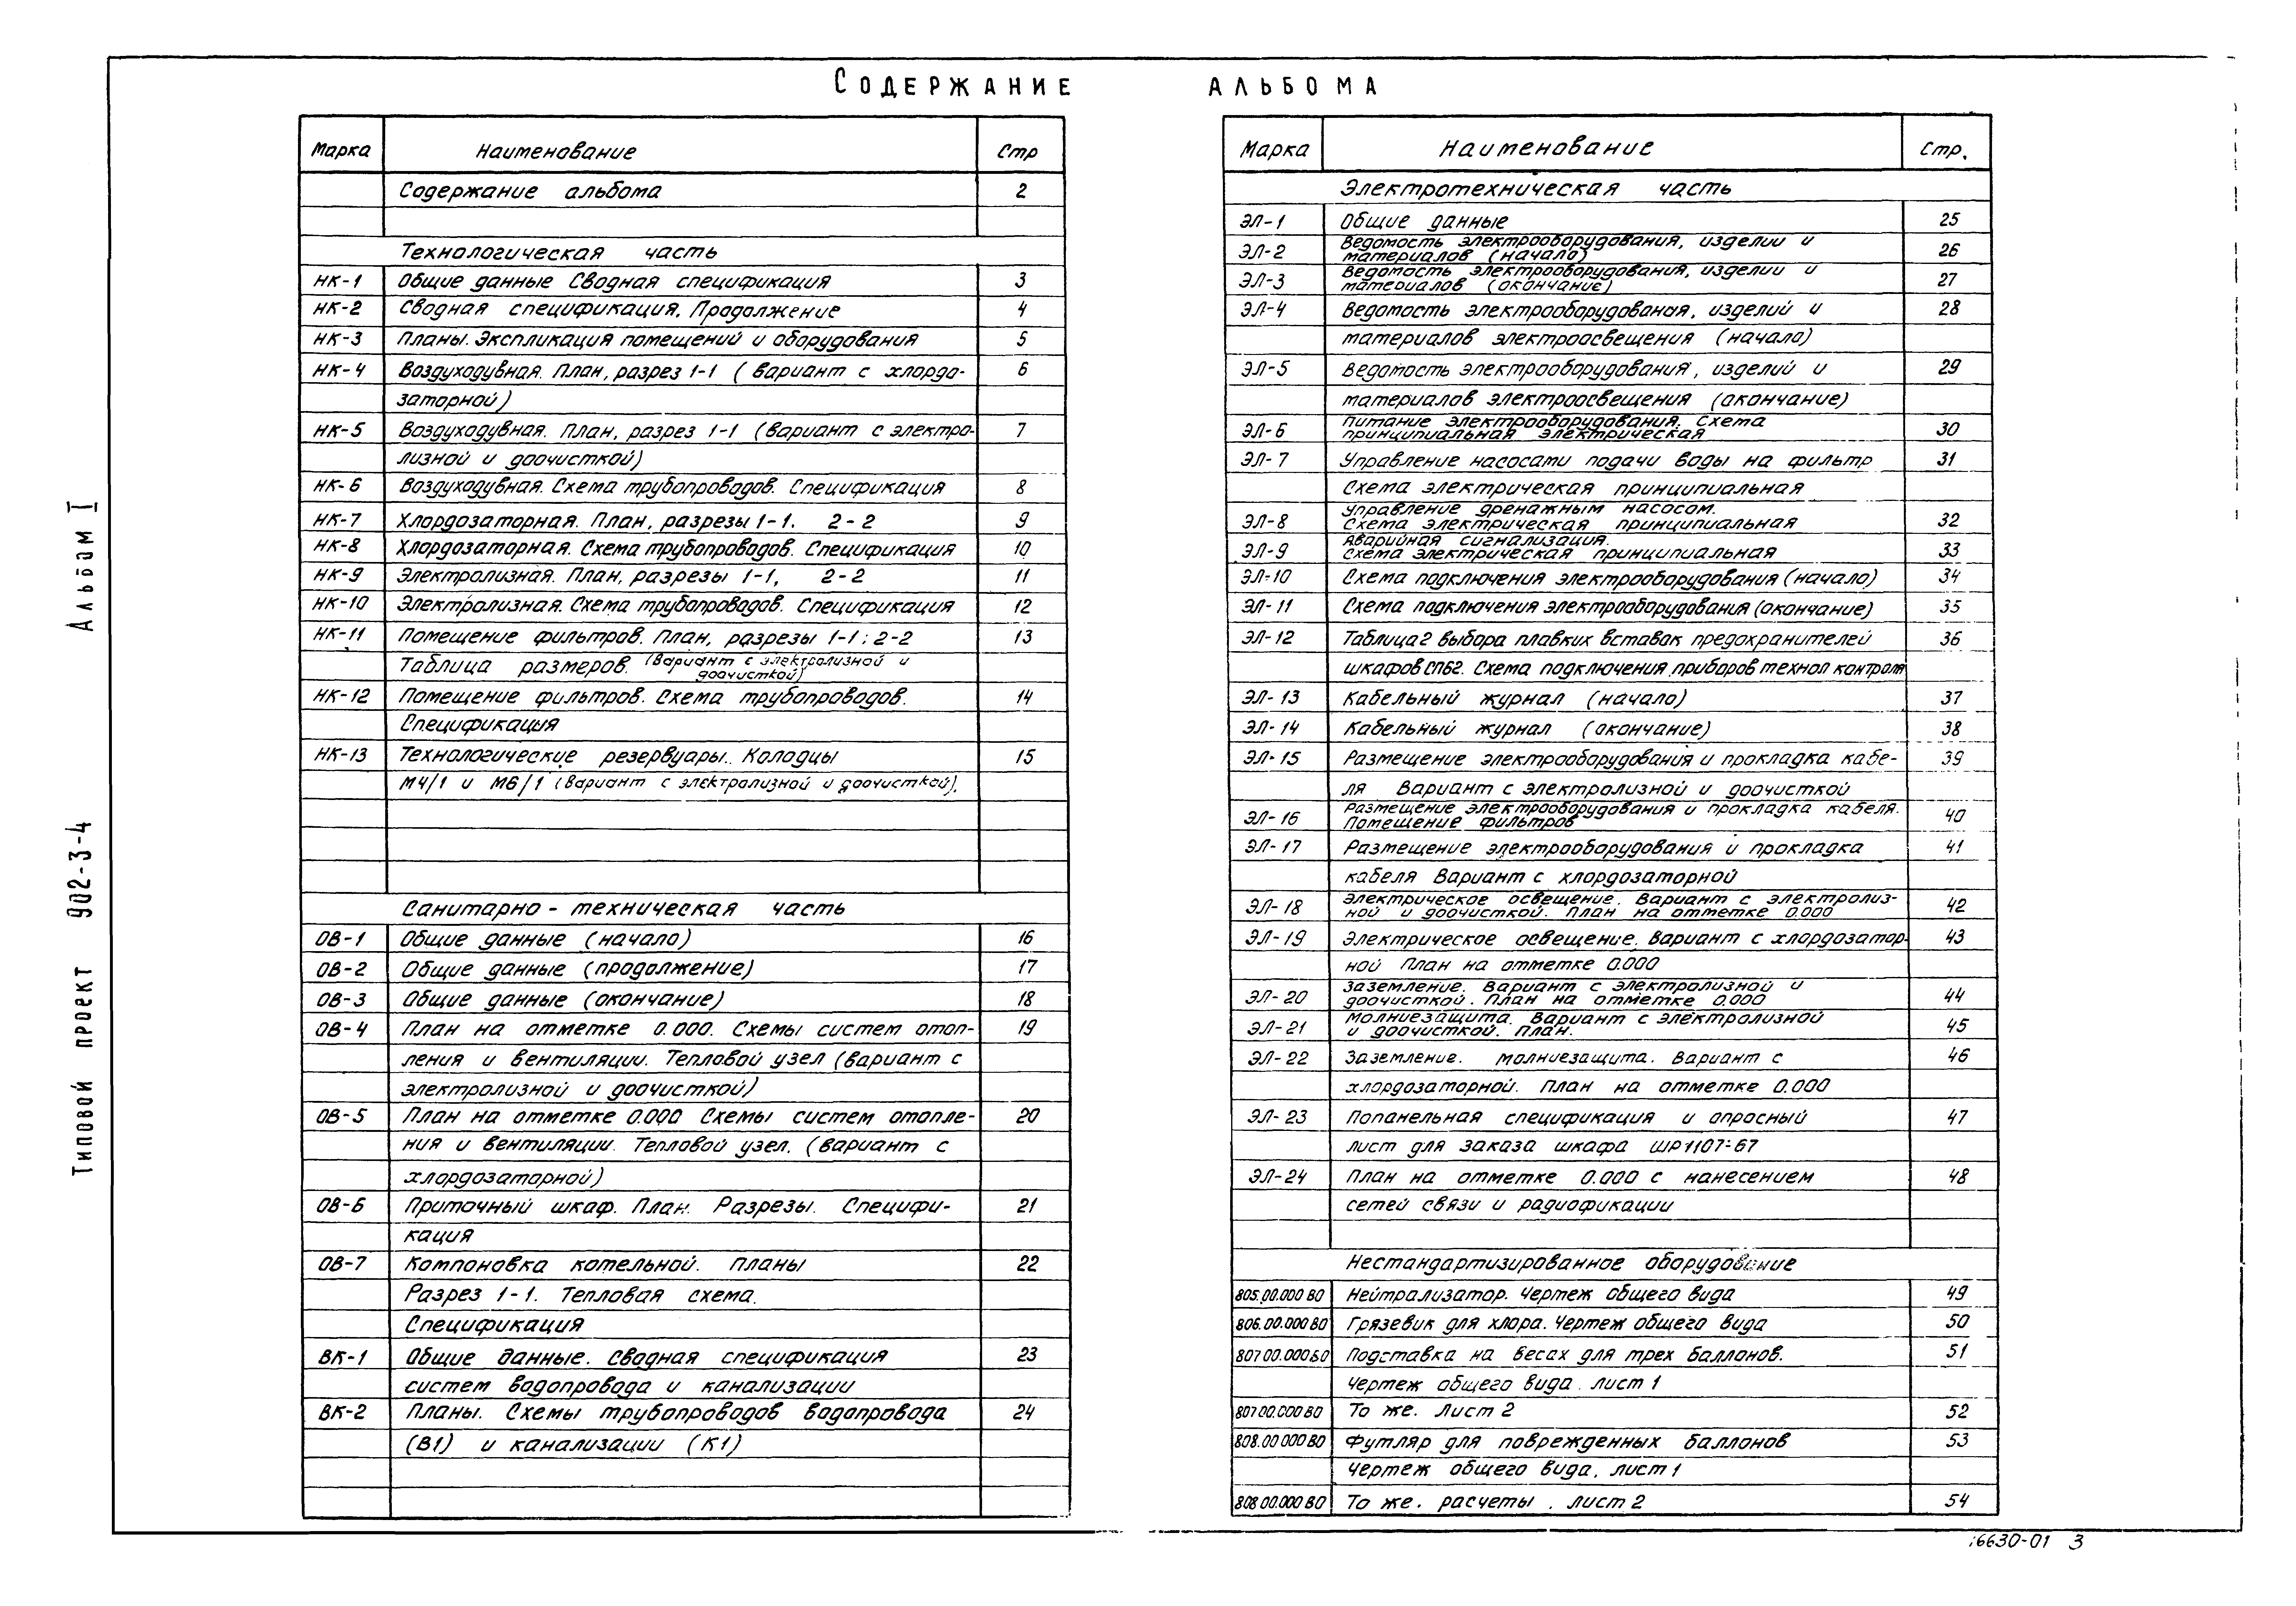 Содержание альбома
Марка Наименование Стр
Содержание альбома 2
Технологическая часть
НК-1 Общие данные Сводная спецификация 3
НК-2 Сводная спецификация. Продолжение 4
НК-3 Планы. Экспликация помещений и оборудования 5
НК-4 Воздуходувная. План, разрез 1-1 (вариант с хлордо- 6
заторной)
НК-5 Воздуходувная. План, разрез 1-1 (вариант с электро- 7
лизной и доочисткой)
НК-6 Воздуходувная. Схема трубопроводов. Спецификация 8
НК-7 Хлордозаторная. План, разрезы 1-1. 2-2 9
НК-8 Хлордозаторная. Схема трубопроводов. Спецификация 10
НК-9 Электролизная. План, разрезы 1-1, 2-2 11
НК-10 Электролизная. Схема трубопроводов. Спецификация 12
НК-11 Помещение фильтров. План, разрезы 1-1; 2-2 13
Таблица размеров. (Вариант с электролизной и
доочисткой)
НК-12 Помещение фильтров. Схема трубопроводов. 14
Спецификация
НК-13 Технологические резервуары. Колодцы 15
М4/1 и М6/1 (Вариант с электролизной и доочисткой).
Санитарно-техническая часть
ОВ-1 Общие данные (начало) 16
ОВ-2 Общие данные (продолжение) 17
ОВ-3 Общие данные (окончание) 18
ОВ-4 План на отметке 0.000. Схемы систем отоп- 19
ления и вентиляции. Тепловой узел (вариант с
электролизной и доочисткой)
ОВ-5 План на отметке 0.000 Схемы систем отопле- 20
ния и вентиляции. Тепловой узел. (вариант с
хлордозаторной)
ОВ-6 Приточный шкаф. План. Разрезы. Специфи- 21
кация
ОВ-7 Компоновка котельной. Планы 22
Разрез 1-1. Тепловая схема.
Спецификация
ВК-1 Общие данные. Сводная спецификация 23
систем водопровода и канализации
ВК-2 Планы. Схемы трубопроводов водопровода 24
(В1) и канализации (К1)
Марка Наименование Стр.
Электротехническая часть
ЭЛ-1 Общие данные 25
ЭЛ-2 Ведомость электрооборудования, изделии и 26
материалов (начало)
ЭЛ-3 Ведомость электрооборудования, изделии и 27
материалов (окончание)
ЭЛ-4 Ведомость электрооборудования, изделий и 28
материалов электроосвещения (начало)
ЭЛ-5 Ведомость электрооборудования, изделий и 29
материалов электроосвещения (окончание)
ЭЛ-6 Питание электрооборудования. Схема 30
принципиальная электрическая
ЭЛ-7 Управление насосами подачи воды на фильтр 31
Схема электрическая принципиальная
ЭЛ-8 Управление дренажным насосом. 32
Схема электрическая принципиальная
ЭЛ-9 Аварийная сигнализация. 33
Схема электрическая принципиальная
ЭЛ-10 Схема подключения электрооборудования (начало) 34
ЭЛ-11 Схема подключения электрооборудования (окончание) 35
ЭЛ-12 Таблица 2 выбора плавких вставок предохранителей 36
шкафов СП62. Схема подключения приборов технол контроля
ЭЛ-13 Кабельный журнал (начало) 37
ЭЛ-14 Кабельный журнал (окончание) 38
ЭЛ-15 Размещение электрооборудования и прокладка кабе- 39
ля Вариант с электролизной и доочисткой
ЭЛ-16 Размещение электрооборудования и прокладка кабеля. 40
Помещение фильтров
ЭЛ-17 Размещение электрооборудования и прокладка 41
кабеля Вариант с хлордозаторной
ЭЛ-18 Электрическое освещение. Вариант с электролиз- 42
ной и доочисткой. План на отметке 0.000
ЭЛ-19 Электрическое освещение. Вариант с хлордозатор- 43
ной План на отметке 0.000
ЭЛ-20 Заземление. Вариант с электролизной и 44
доочисткой. План на отметке 0.000
ЭЛ-21 Молниезащита. Вариант с электролизной 45
и доочисткой. План.
ЭЛ-22 Заземление. Молниезащита. Вариант с 46
хлордозаторной. План на отметке 0.000
ЭЛ-23 Попанельная спецификация и опросный 47
лист для заказа шкафа ШР1107-67
ЭЛ-24 План на отметке 0.000 с нанесением 48
сетей связи и радиофикации
Нестандартизированное оборудование
805.00.000 ВО Нейтрализатор. Чертеж общего вида 49
806.00.000 ВО Грязевик для хлора. Чертеж общего вида 50
807 00.000 ВО Подставка на весах для трех баллонов. 51
Чертеж общего вида. лист 1
807 00.000 ВО То же. Лист 2 52
808.00 000 ВО Футляр для поврежденных баллонов 53
Чертеж общего вида. лист 1
808 00.000 ВО То же. расчеты. лист 2 54
Типовой проект 902-3-4 Альбом I
16630-01 3